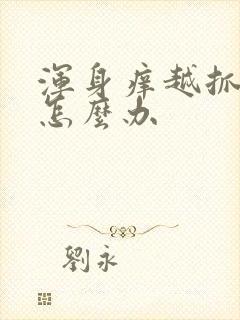 渾身痒越抓
怎麼办
劉永